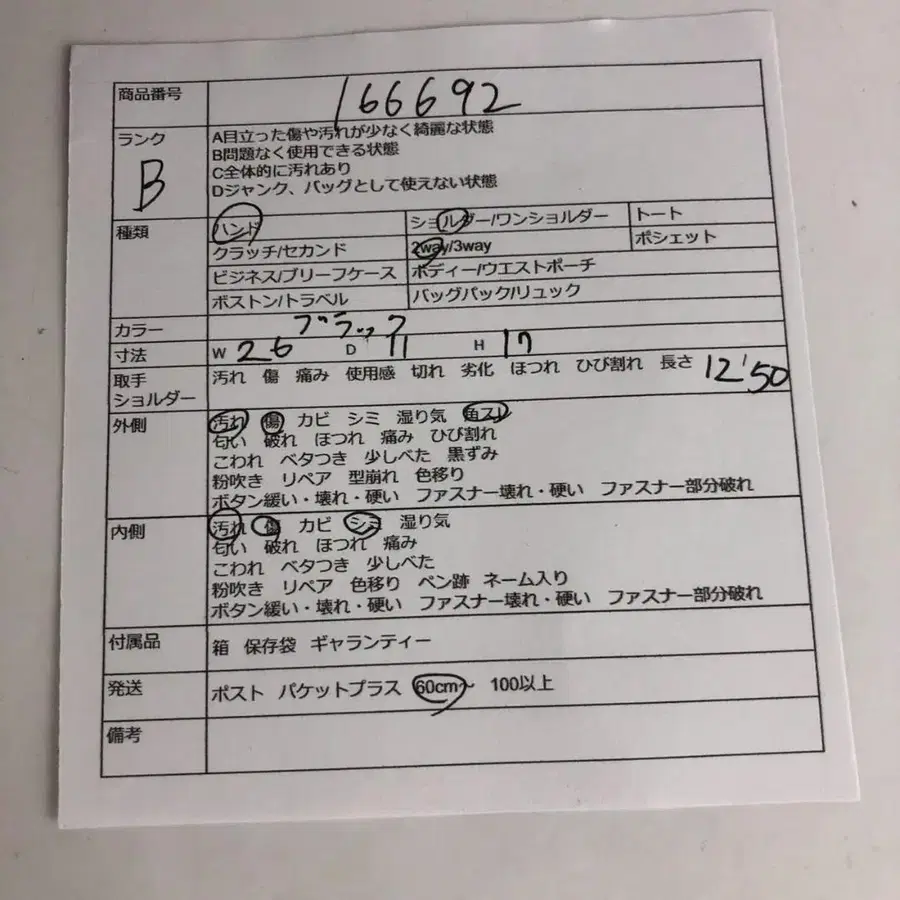 商品番号 166692
ランク B
A目立った傷や汚れが少なく綺麗な状態
B問題なく使用できる状態
C全体的に汚れあり
Dジャンク、バッグとして使えない状態
種類
ハンド ショルダー/ワンショルダー トート
クラッチ/セカンド 2way/3way ポシェット
ビジネス/ブリーフケース ボディー/ウエストポーチ
ボストン/トラベル バッグパック/リュック
カラー ブラック
寸法 W 26 D 11 H 17
取手 汚れ 傷 痛み 使用感 切れ 劣化 ほつれ ひび割れ 長さ 12'50
ショルダー
外側 汚れ 傷 カビ シミ 湿り気 角スレ
匂い 破れ ほつれ 痛み ひび割れ
こわれ ベタつき 少しべた 黒ずみ
粉吹き リペア 型崩れ 色移り
ボタン緩い・壊れ・硬い ファスナー壊れ・硬い ファスナー部分破れ
内側 汚れ 傷 カビ シミ 湿り気
匂い 破れ ほつれ 痛み
こわれ ベタつき 少しべた
粉吹き リペア 色移り ペン跡 ネーム入り
ボタン緩い・壊れ・硬い ファスナー壊れ・硬い ファスナー部分破れ
付属品 箱 保存袋 ギャランティー
発送 ポスト パケットプラス 60cm~ 100以上
備考